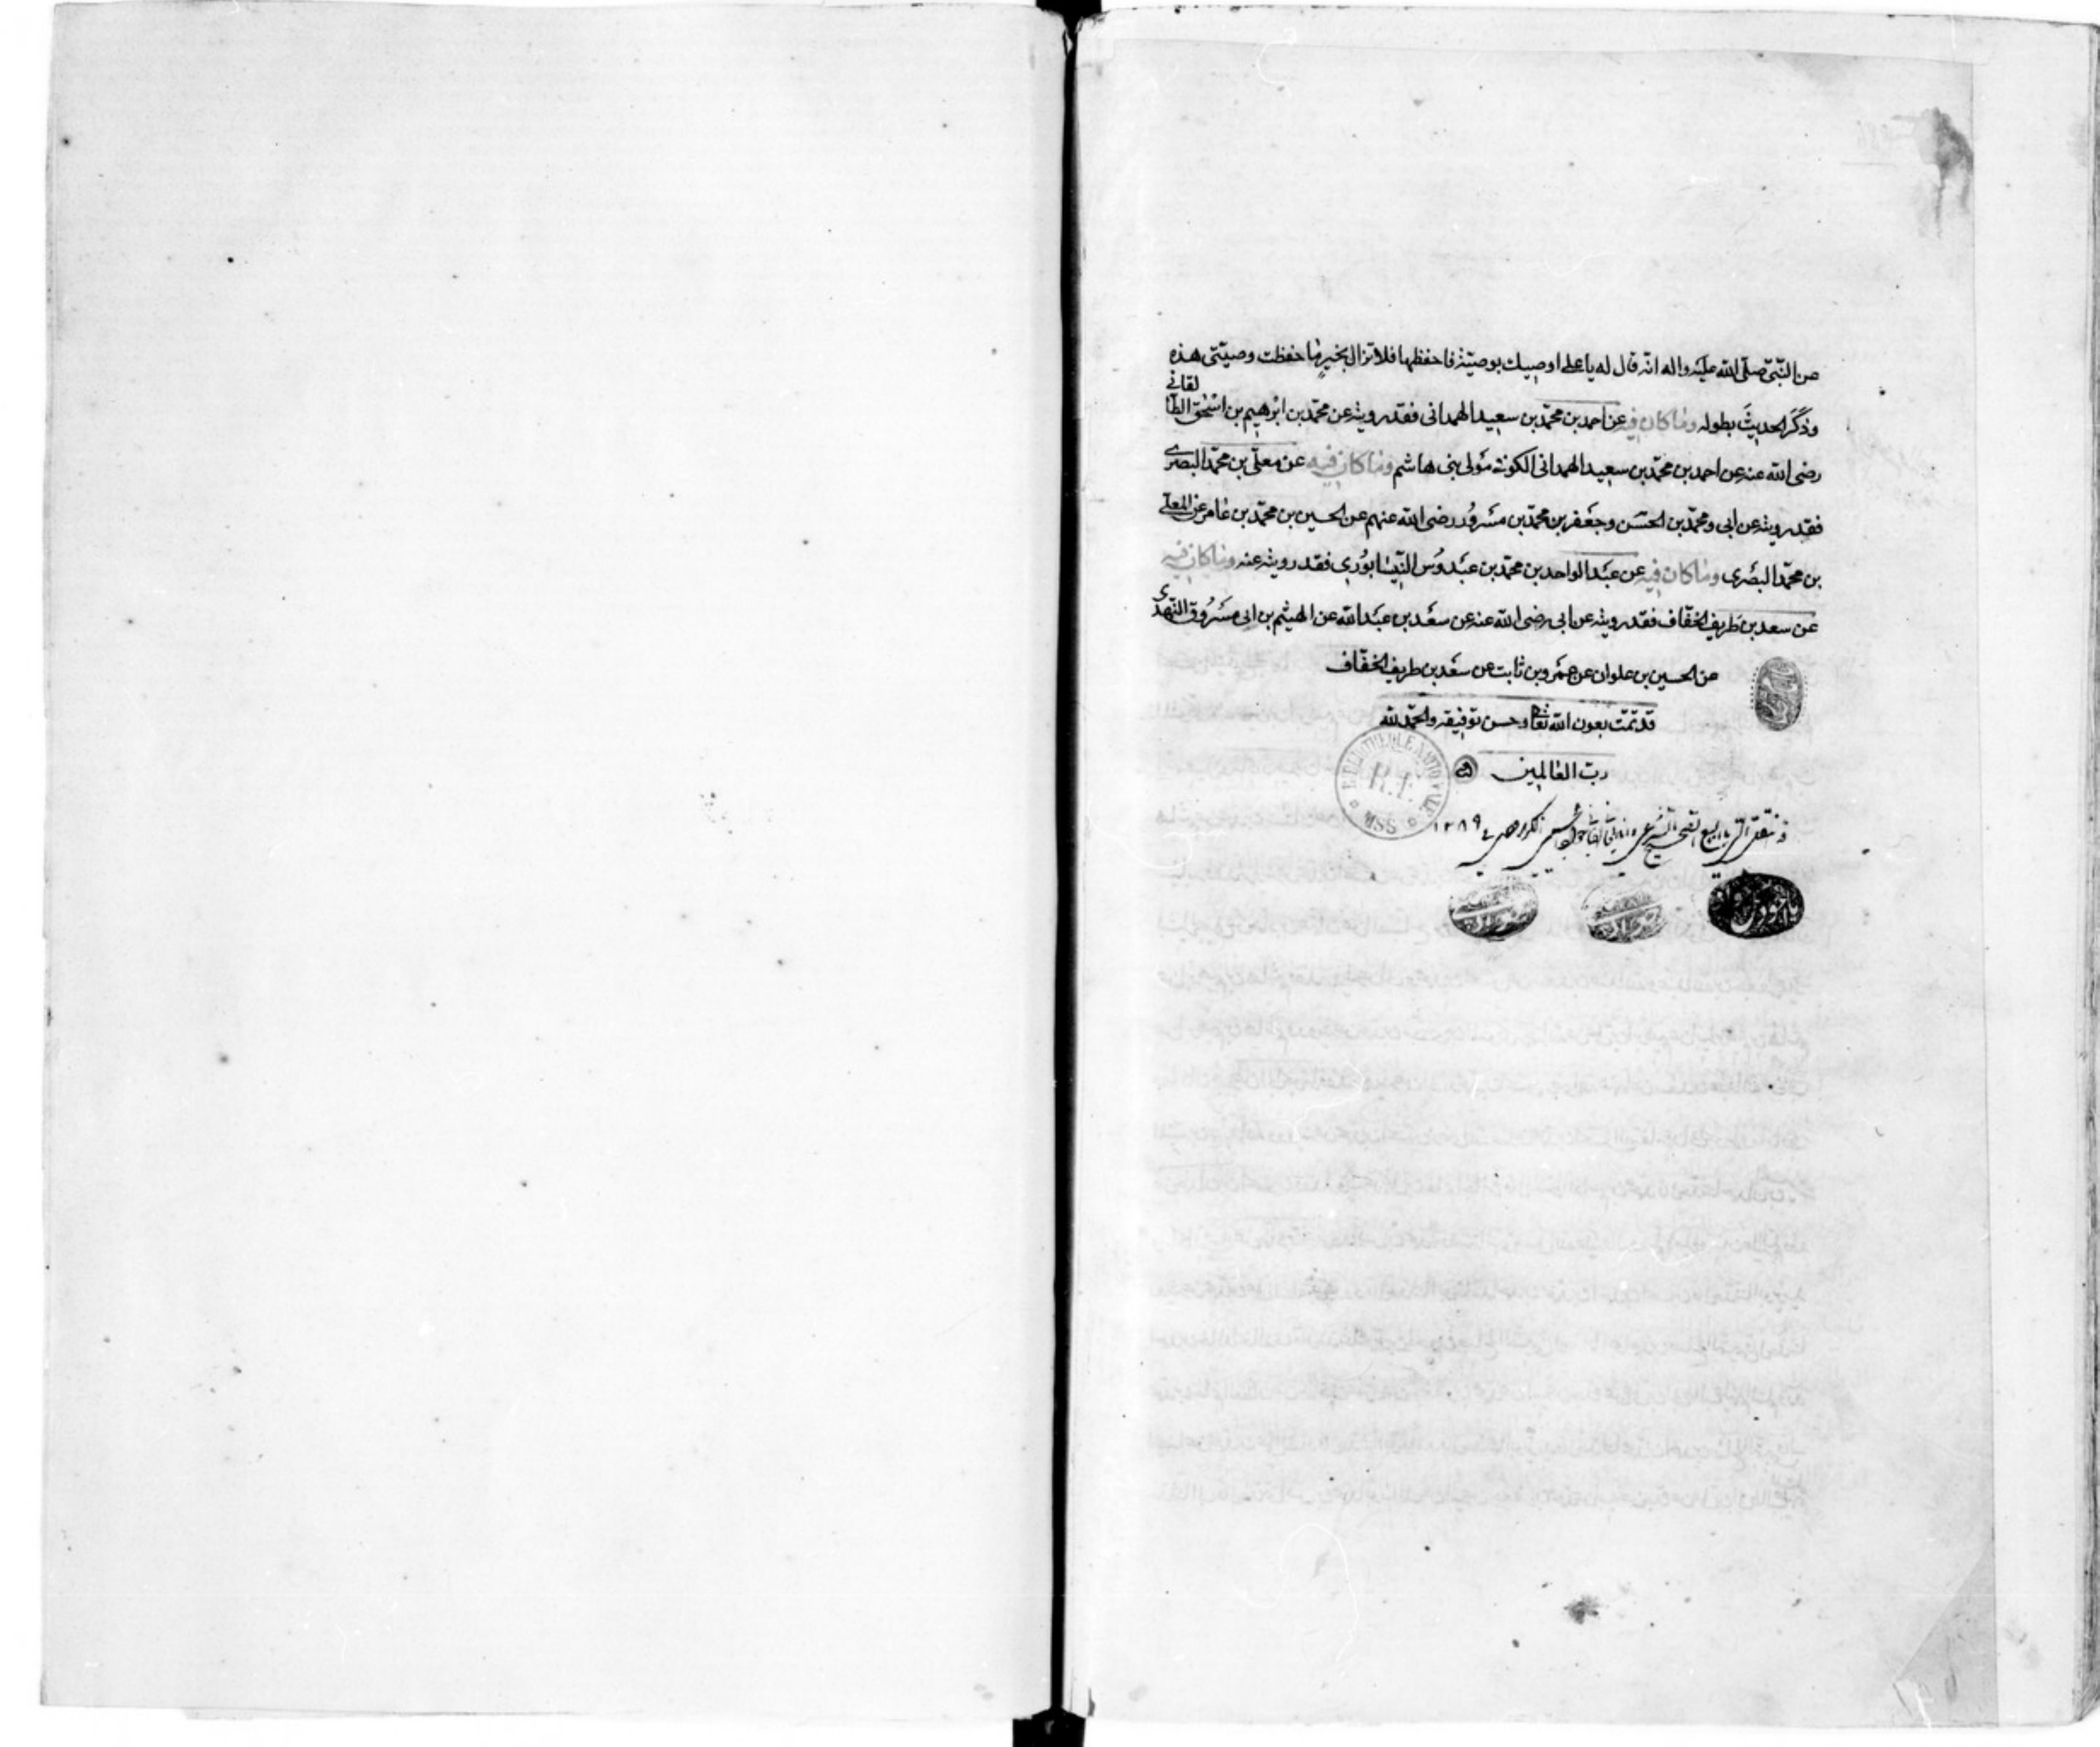 عن النّبىّ صلّى الله عليه واله انّه قال له يا على اوصيك بوصيّة فاحفظها فلا تزال بخيرٍ ما حفظت وصيّتى هذه
وذكَر الحديثَ بطوله وما كان فيه عن احمد بن محمّد بن سعيد الهمدانى فقد رويته عن محمّد بن ابرٰهيم بن اسْحٰق الطّا
لقانى
رضى الله عنه عن احمد بن محمّد بن سعيد الهمدانى الكوفى مَولى بنى هاشم وما كان فيه عن معلّى بن محمّد البصرى
فقد رويته عن ابى ومحمّد بن الحسَن وجعَفر بن محمّد بن مسْرُور رضى الله عنهم عن الحسين بن محمّد بن عامر عن المعلّى
بن محمّد البصْرى وما كان فيه عن عبْد الواحد بن محمّد بن عبْدوُس النّيسٰابوُرى فقد رويته عنه وما كان فيه
عن سعد بن طَريف الخفّاف فقد رويته عن ابى رضى الله عنه عن سعْد بن عبْد الله عن الهيثم بن ابى مسْرُوق النّهدىّ
عن الحسين بن علوان عن عمْرو بن ثابت عن سعْد بن طريف الخفّاف
قد تمّت بعون الله تعٰالى وحسن توفيقه والحمْد لله
ربّ العٰالمين
١٢٨٩
BIBLIOTHÈQUE NATIONALE
R.F.
MSS